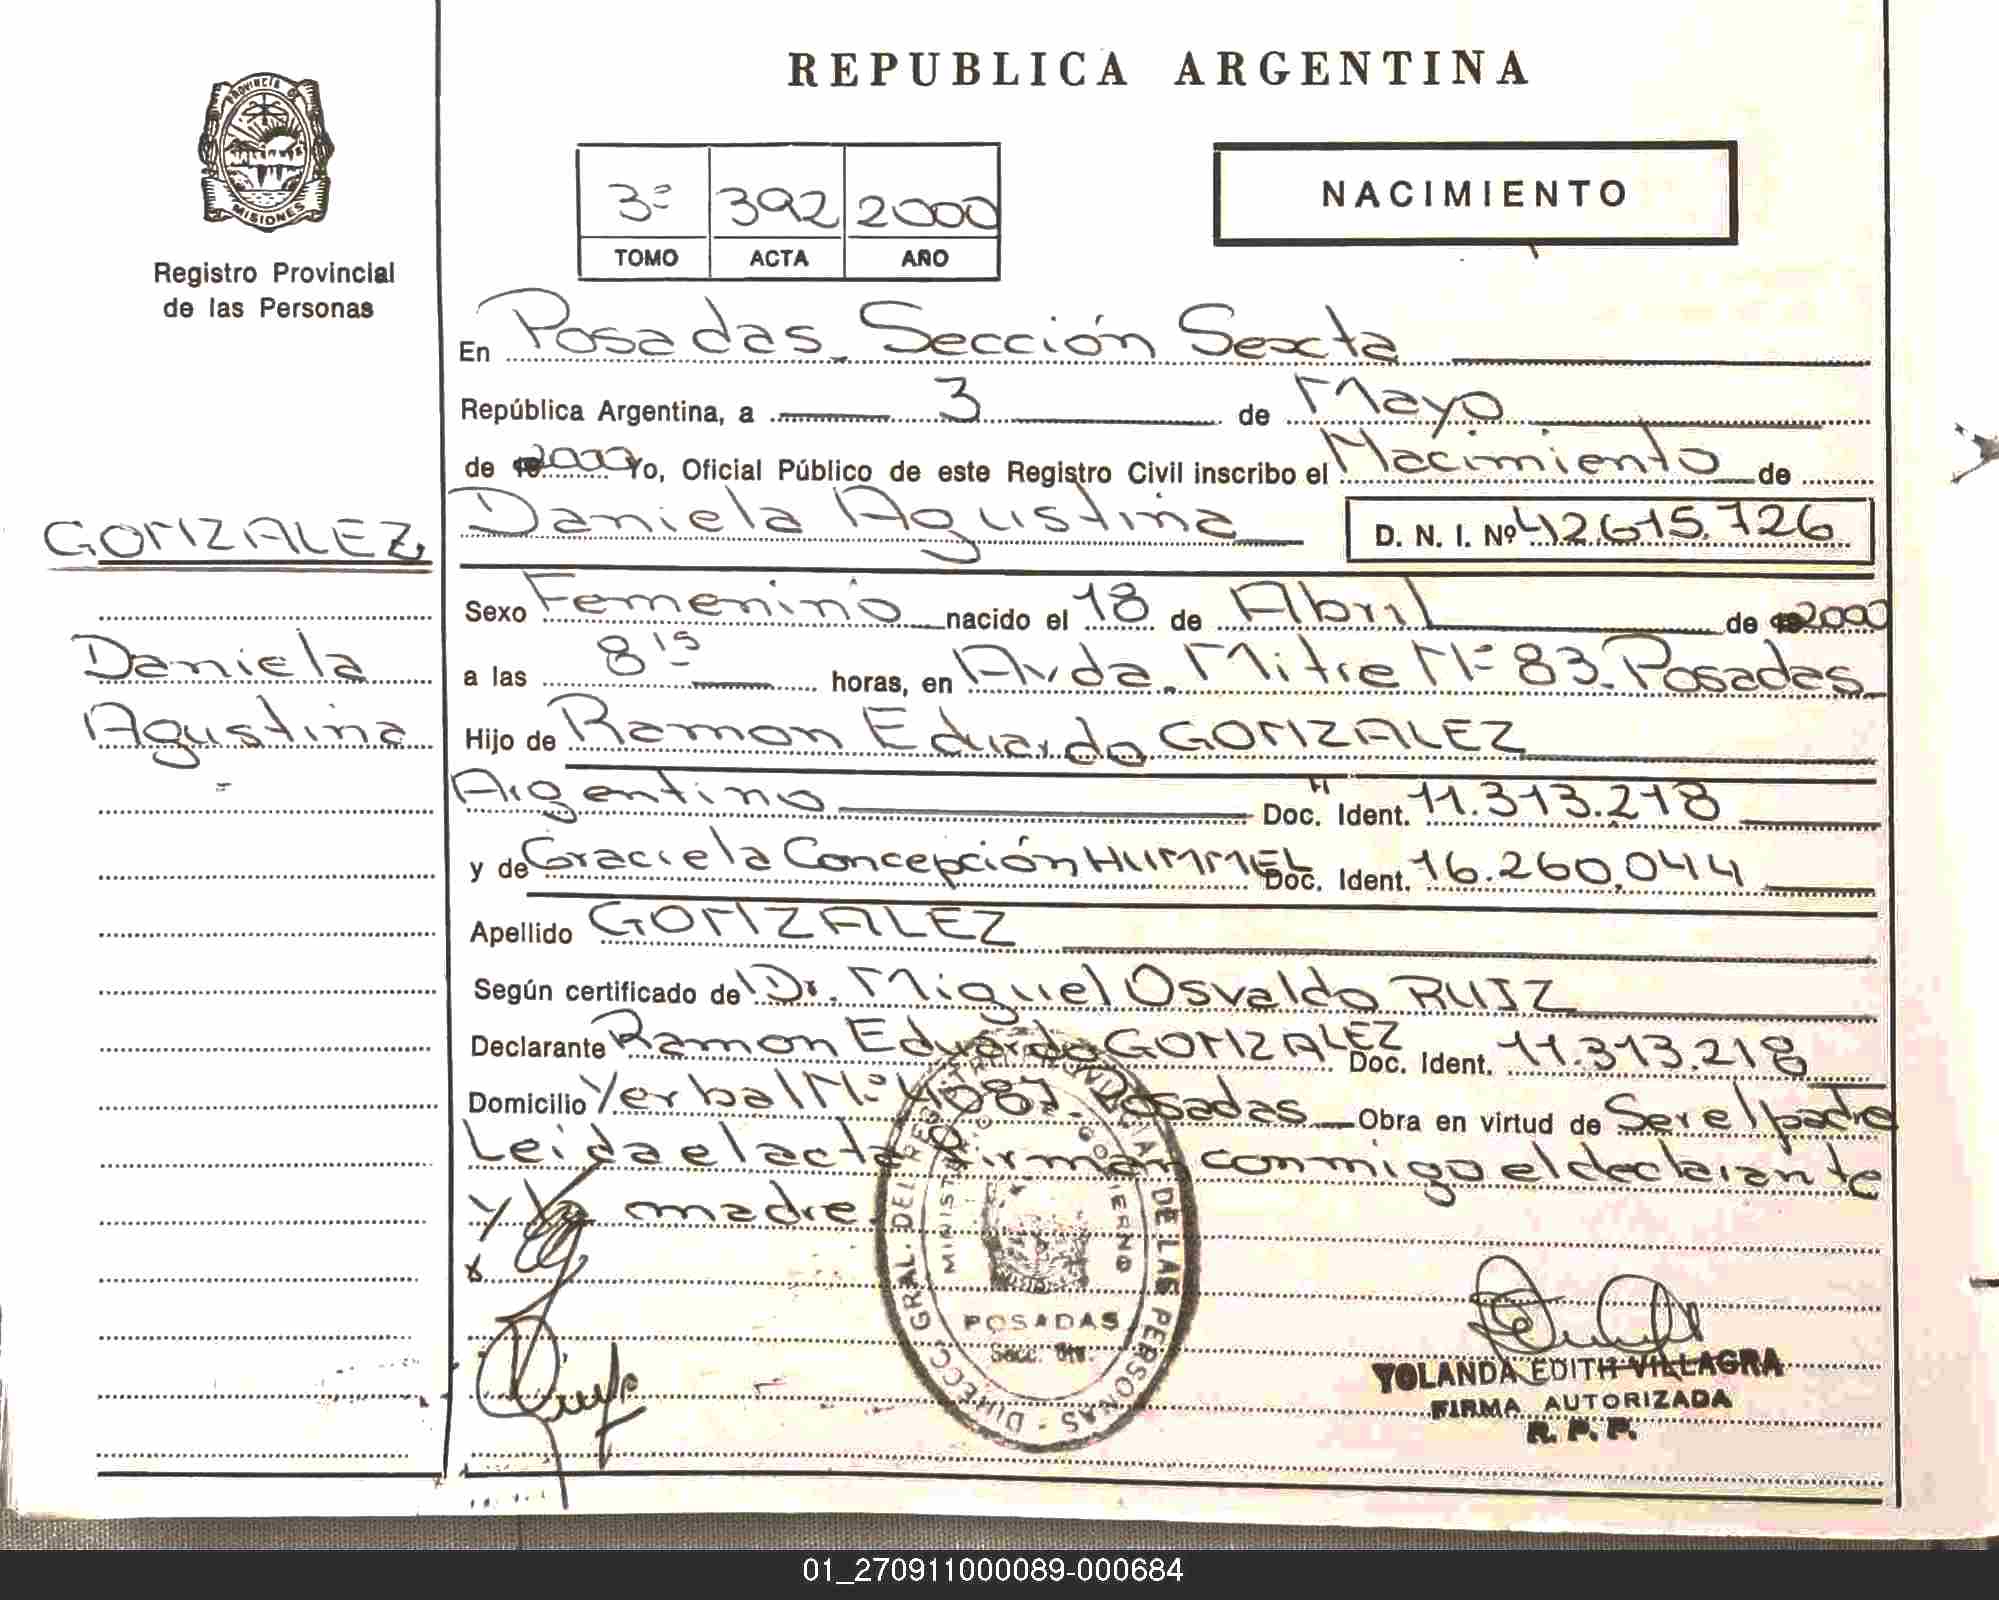 REPUBLICA ARGENTINA
PROVINCIA DE
MISIONES
Registro Provincial
de las Personas
3º 392 2000
TOMO ACTA AÑO
NACIMIENTO
En Posadas Sección Sexta
República Argentina, a 3 de Mayo
de 2000 Yo, Oficial Público de este Registro Civil inscribo el Nacimiento de
GONZALEZ
Daniela Agustina D. N. I. Nº 42.615.726
Sexo Femenino nacido el 18 de Abril de 2000
Daniela
a las 8 15 horas, en Avda. Mitre Nº 83. Posadas
Agustina
Hijo de Ramon Eduardo GONZALEZ
Argentino Doc. Ident. 11.313.218
y de Graciela Concepción HUMMEL Doc. Ident. 16.260.044
Apellido GONZALEZ
Según certificado de Dr. Miguel Osvaldo RUIZ
Declarante Ramon Eduardo GONZALEZ Doc. Ident. 11.313.218
Domicilio Yerbal Nº 4087. Posadas Obra en virtud de Ser el padre
Leida el acta firman conmigo el declarante
y la madre.
DIRECC. GRAL. DEL REGISTRO PROVINCIAL DE LAS PERSONAS
MINISTERIO DE GOBIERNO
POSADAS
Secc. 6ta.
YOLANDA EDITH VILLAGRA
FIRMA AUTORIZADA
R. P. P.
01_270911000089-000684